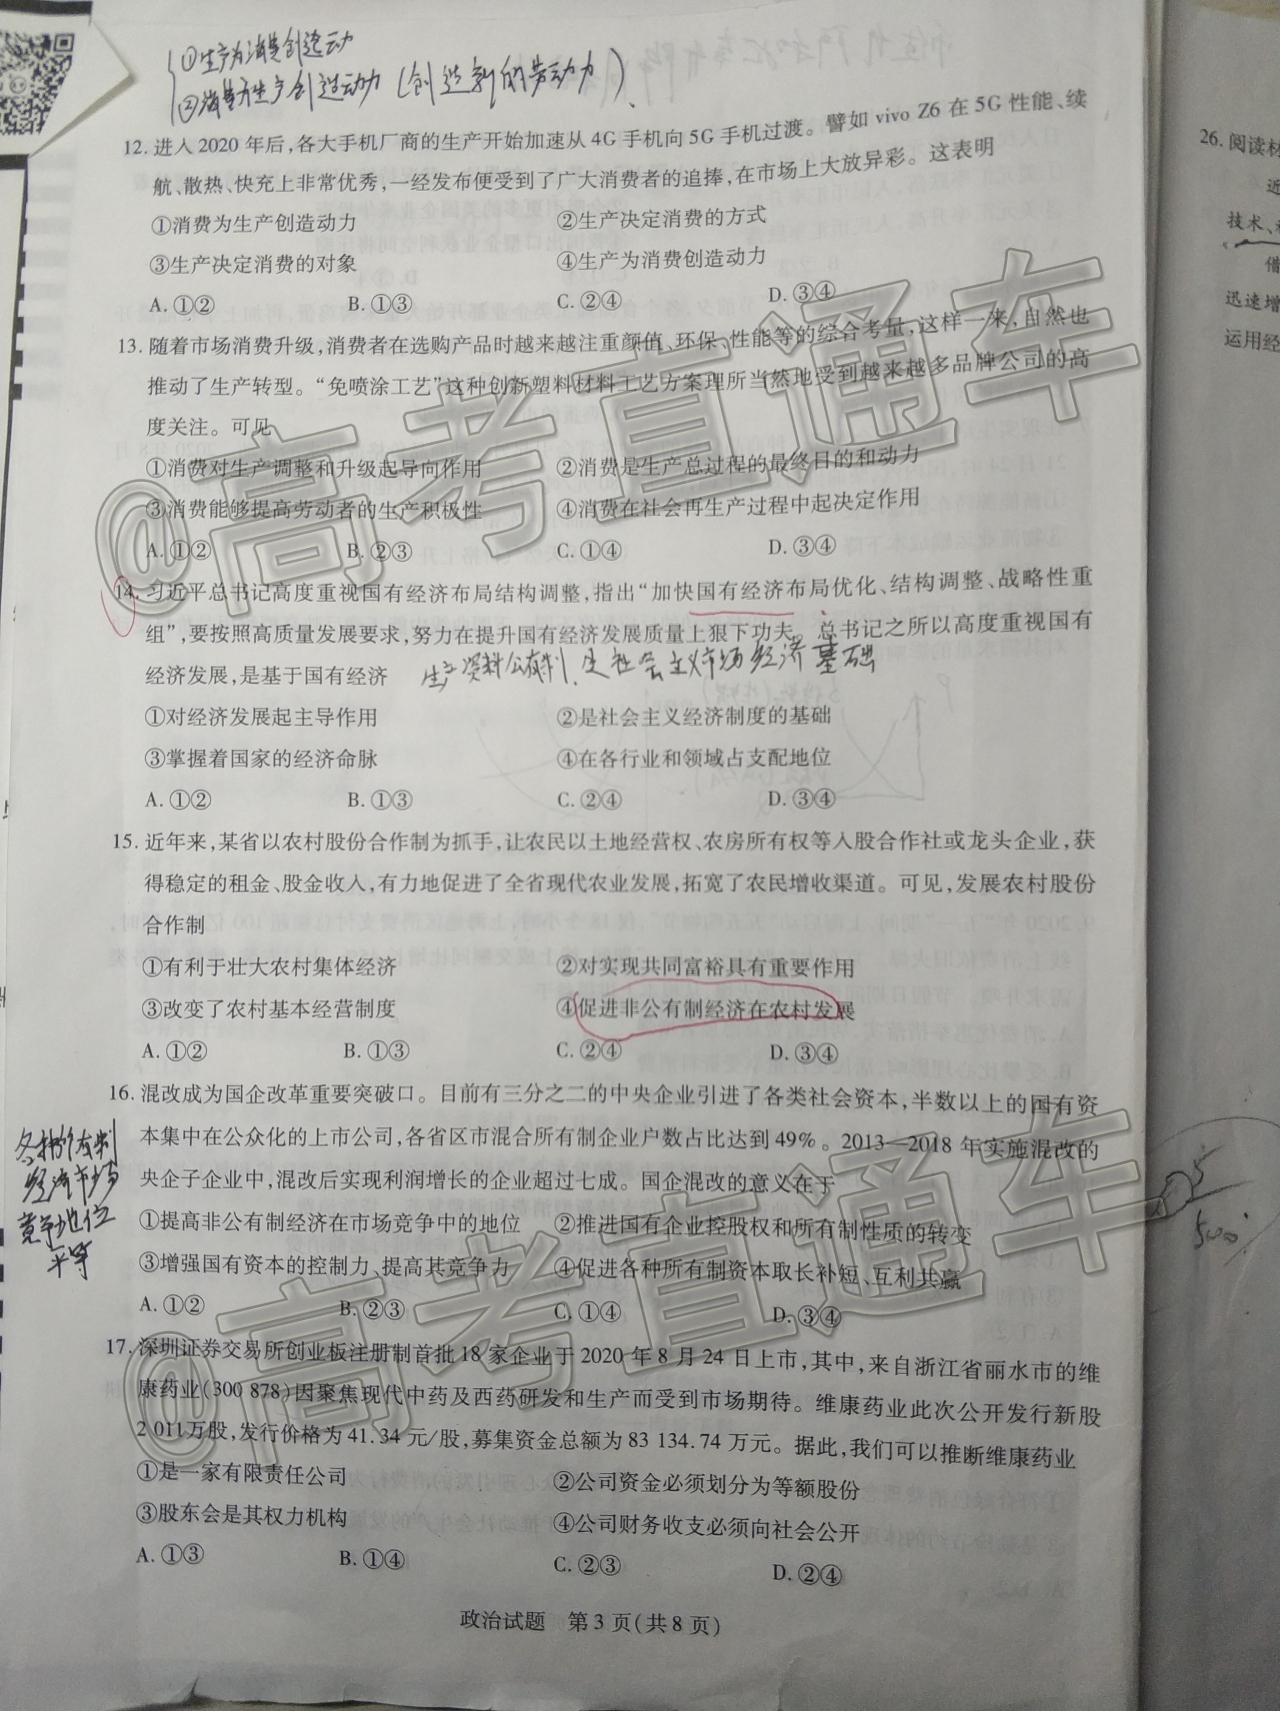 ①生产为消费创造动
②消费为生产创造动力(创造新的劳动力)
12.进入2020年后,各大手机厂商的生产开始加速从4G手机向5G手机过渡。譬如vivo Z6在5G性能、续
航、散热、快充上非常优秀,一经发布便受到了广大消费者的追捧,在市场上大放异彩。这表明
①消费为生产创造动力 ②生产决定消费的方式
③生产决定消费的对象 ④生产为消费创造动力
A.①② B.①③ C.②④ D.③④
13.随着市场消费升级,消费者在选购产品时越来越注重颜值、环保、性能等的综合考量,这样一来,自然也
推动了生产转型。“免喷涂工艺”这种创新塑料材料工艺方案理所当然地受到越来越多品牌公司的高
度关注。可见
①消费对生产调整和升级起导向作用 ②消费是生产总过程的最终目的和动力
③消费能够提高劳动者的生产积极性 ④消费在社会再生产过程中起决定作用
A.①② B.②③ C.①④ D.③④
14.习近平总书记高度重视国有经济布局结构调整,指出“加快国有经济布局优化、结构调整、战略性重
组”,要按照高质量发展要求,努力在提升国有经济发展质量上狠下功夫。总书记之所以高度重视国有
经济发展,是基于国有经济 生产资料公有制,是社会主义市场经济基础
①对经济发展起主导作用 ②是社会主义经济制度的基础
③掌握着国家的经济命脉 ④在各行业和领域占支配地位
A.①② B.①③ C.②④ D.③④
15.近年来,某省以农村股份合作制为抓手,让农民以土地经营权、农房所有权等入股合作社或龙头企业,获
得稳定的租金、股金收入,有力地促进了全省现代农业发展,拓宽了农民增收渠道。可见,发展农村股份
合作制
①有利于壮大农村集体经济 ②对实现共同富裕具有重要作用
③改变了农村基本经营制度 ④促进非公有制经济在农村发展
A.①② B.①③ C.②④ D.③④
16.混改成为国企改革重要突破口。目前有三分之二的中央企业引进了各类社会资本,半数以上的国有资
本集中在公众化的上市公司,各省区市混合所有制企业户数占比达到49%。2013—2018年实施混改的
央企子企业中,混改后实现利润增长的企业超过七成。国企混改的意义在于
①提高非公有制经济在市场竞争中的地位 ②推进国有企业控股权和所有制性质的转变
③增强国有资本的控制力、提高其竞争力 ④促进各种所有制资本取长补短、互利共赢
A.①② B.②③ C.①④ D.③④
各种所有制
经济市场
竞争地位
平等
17.深圳证券交易所创业板注册制首批18家企业于2020年8月24日上市,其中,来自浙江省丽水市的维
康药业(300 878)因聚焦现代中药及西药研发和生产而受到市场期待。维康药业此次公开发行新股
2 011万股,发行价格为41.34元/股,募集资金总额为83 134.74万元。据此,我们可以推断维康药业
①是一家有限责任公司 ②公司资金必须划分为等额股份
③股东会是其权力机构 ④公司财务收支必须向社会公开
A.①③ B.①④ C.②③ D.②④
政治试题 第3页(共8页)
@高考直通车
@高考直通车
26.阅读材
近
技术、
借
迅速增
运用经
5
500